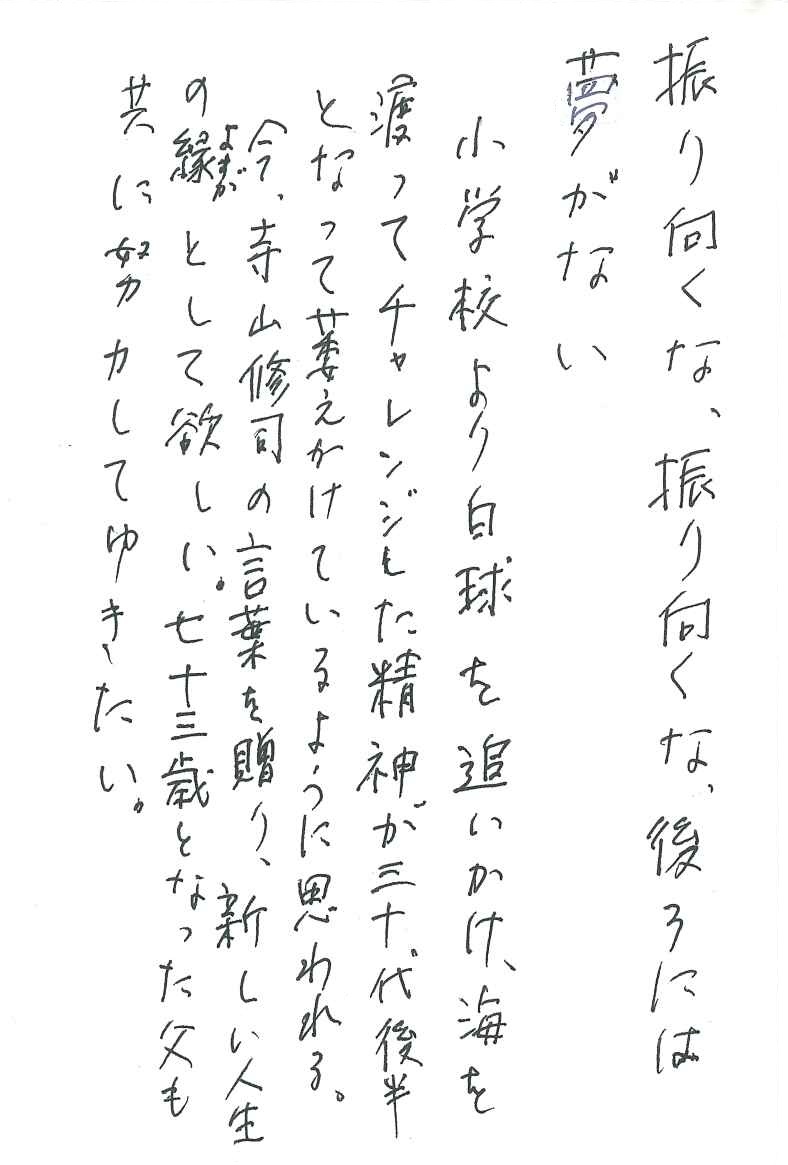 振り向くな、振り向くな、後ろには
夢がない
小学校より白球を追いかけ、海を
渡ってチャレンジした精神が三十代後半
となって萎えかけているように思われる。
今、寺山修司の言葉を贈り、新しい人生
の縁よすがとして欲しい。七十三歳となった父も
共に努力してゆきたい。